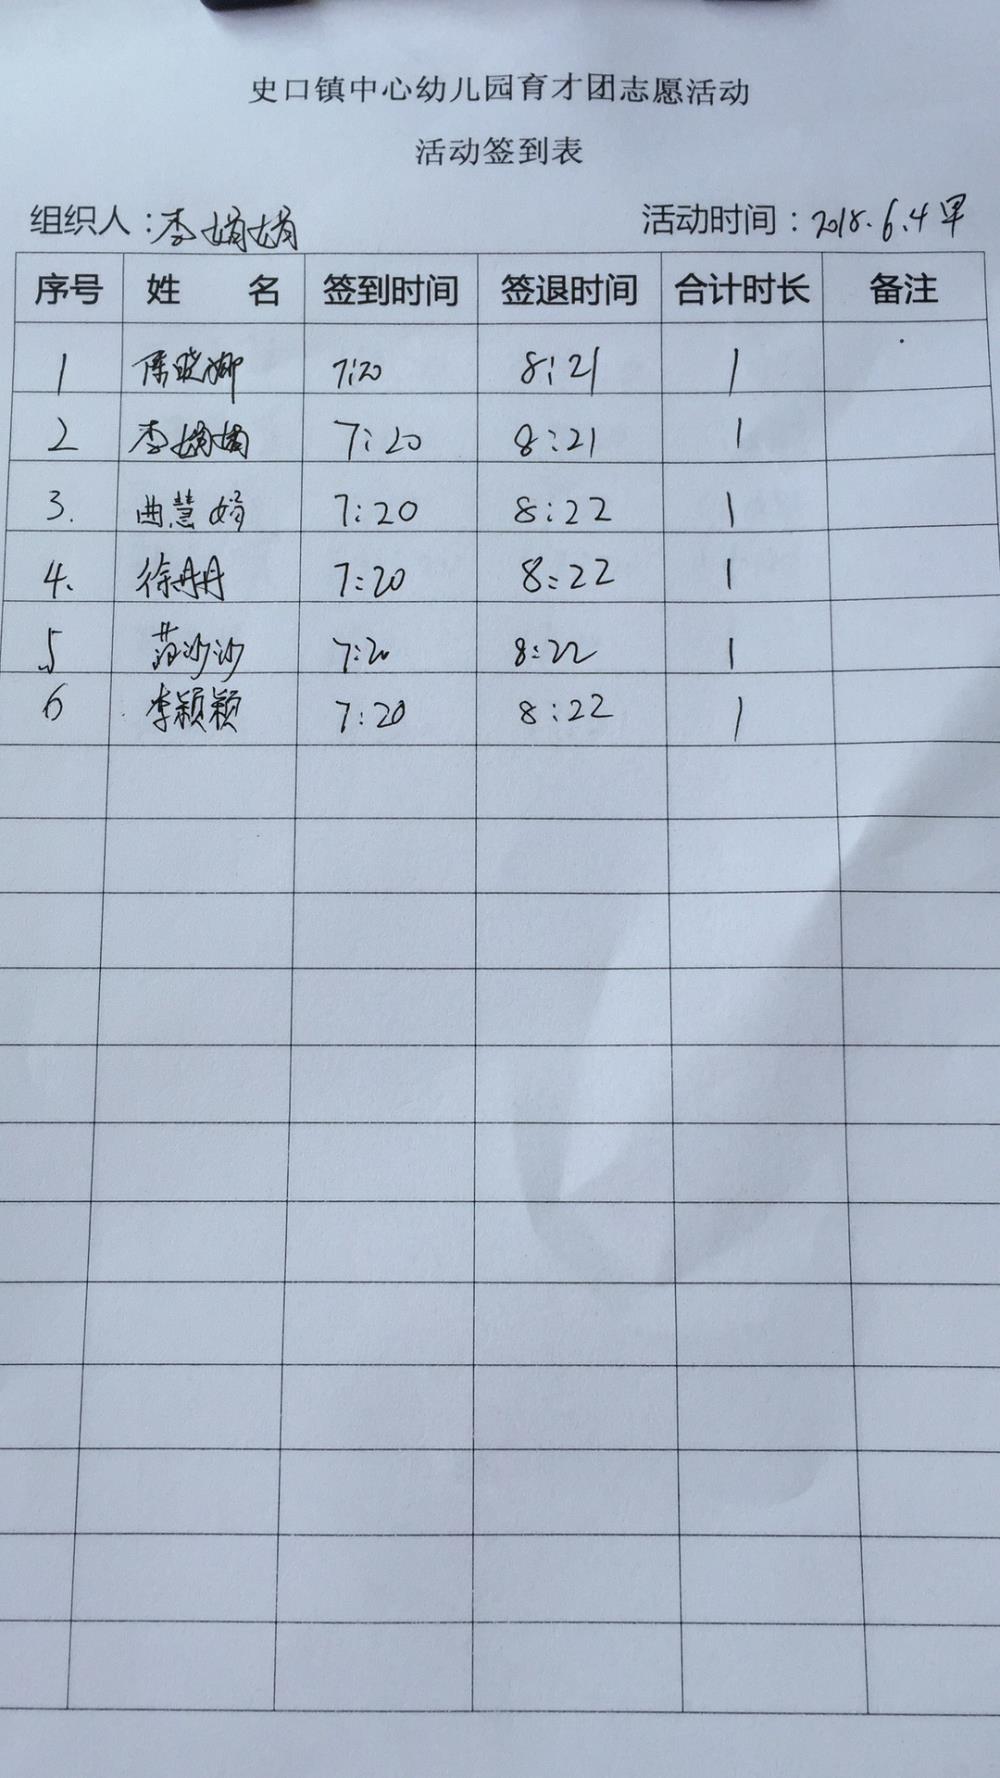 史口镇中心幼儿园育才团志愿活动
活动签到表
组织人：李娟娟 活动时间：2018.6.4早
序号 姓 名 签到时间 签退时间 合计时长 备注
1 晓娜 7:20 8:21 1
2 李娟娟 7:20 8:21 1
3. 曲慧娟 7:20 8:22 1
4. 徐丹丹 7:20 8:22 1
5 范沙沙 7:20 8:22 1
6 李颖颖 7:20 8:22 1